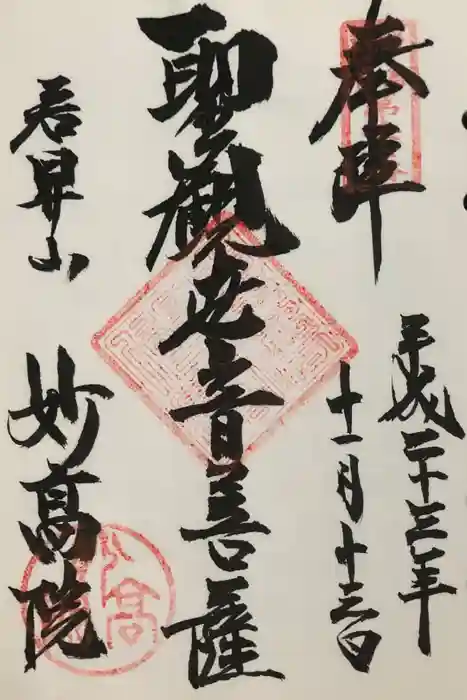 奉拝
平成二十三年
十一月十三日
聖観世音菩薩
岩昇山
妙高院